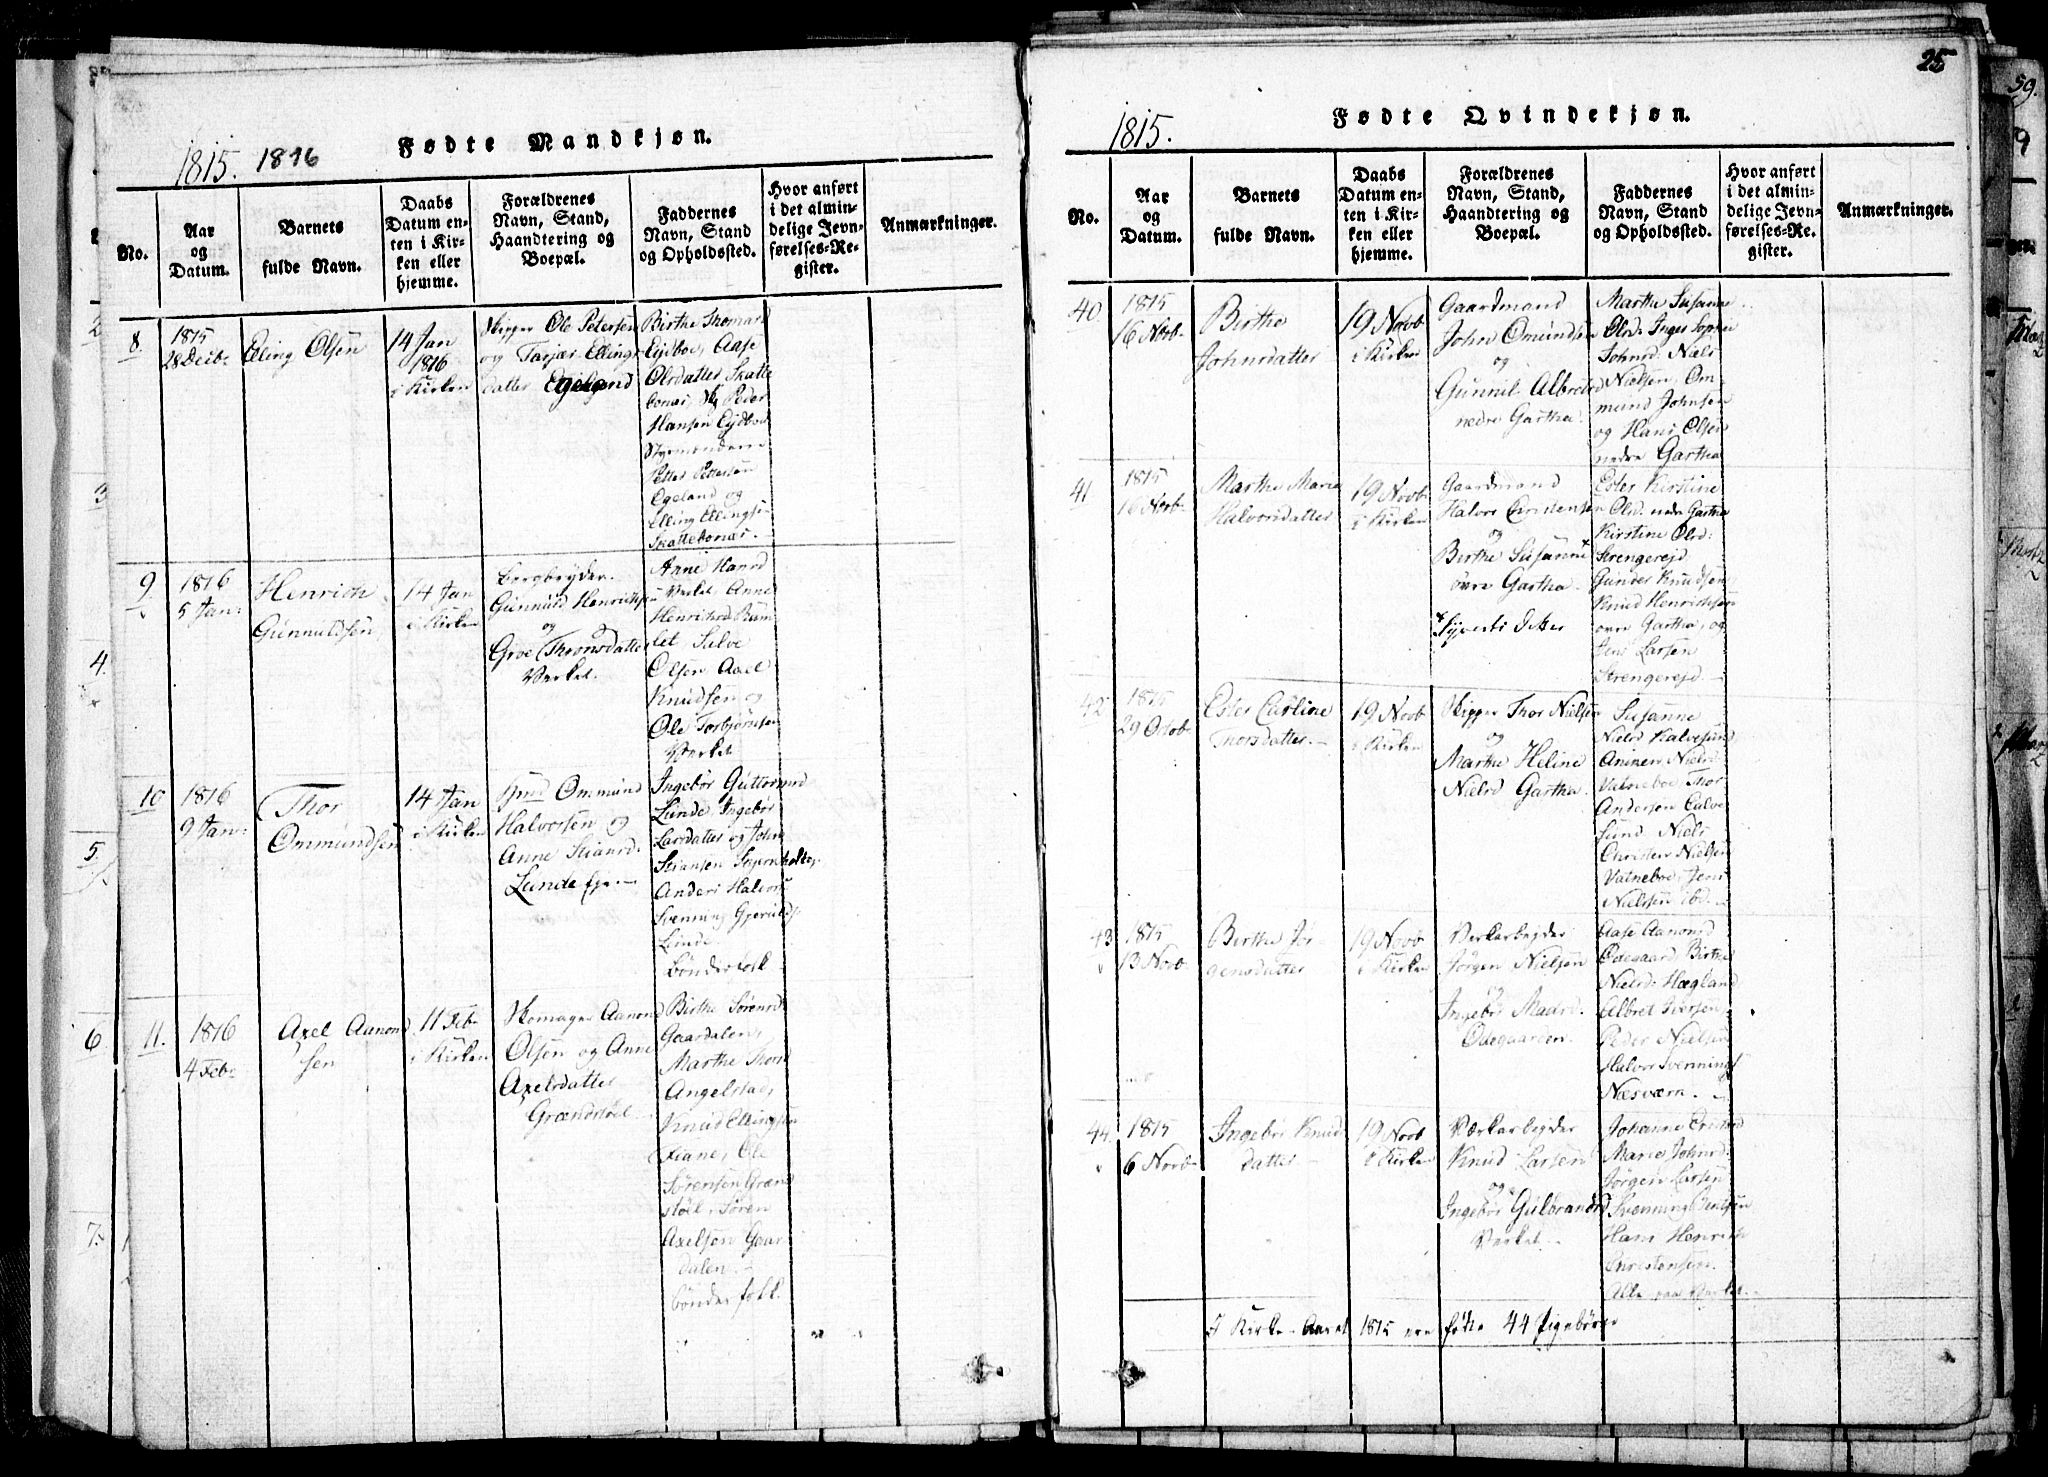 1815. 1816
Fødte Mandkjøn.
No.
Aar
og
Datum.
Barnets
fulde Navn.
Daabs
Datum en-
ten i Kir-
ken eller
hjemme.
Forældrenes
Navn, Stand,
Haandtering og
Boepæl.
Faddernes
Navn, Stand
og Opholdssted.
Hvor anført
i det almin-
delige Jevn-
førelses-Re-
gister.
Anmærkninger.
8.
1815
28 Decbr
Elling Olsen
14 Jan
1816
i Kirken
Skipper Ole Petersen
og Tarjær Ellings
datter Egeland
Birthe Thomasd
Eydboe, Aase
Olsdatter Skatte
bonæs, Peder
Hansen Eydboe
Petter Pettersen
Egeland og
Elling Ellingse
Skattebonæs.
9.
1816
5 Jan:
Henrich
Gunnuldsen
14 Jan
i Kirken
Bergbryder
Gunnuld Henrichsen
og
Groe Thronsdatter
Verket.
Anne Hansd
Verket Anne
Henrichsd Ram
let Salve
Olsen Axel
Knudsen og
Ole Torbjørnsen
Verket
10
1816
9 Jan:
Thor
Ommundsen
14 Jan
i Kirken
Ommund
Halvorsen og
Anne Stiansd:
Lunde
Ingebor Guttormsd
Lunde, Ingebor
Larsdatter og John
Stiansen Skjernholte,
Anders Halvors
Svenning Gjeruldse
Lunde
bønderfolk
11.
1816
4 Feb:
Axel Aanond
sen
11 Feb
i Kirken
Skomager Aanond
Olsen og Anne
Axelsdatter
Grændstøel
Birthe Sørensd
Gaardalen,
Marthe Thors
Angelstad,
Knud Ellingsen
Fiane, Ole
Sørensen Grænd
støel, Søren
Axelsen Gaar
dalen.
bønderfolk
25
1815.
Fødte Qvindekjøn.
No.
Aar
og
Datum.
Barnets
fulde Navn.
Daabs
Datum en-
ten i Kir-
ken eller
hjemme.
Forældrenes
Navn, Stand,
Haandtering og
Boepæl.
Faddernes
Navn, Stand
og Opholdssted.
Hvor anført
i det almin-
delige Jevn-
førelses-Re-
gister.
Anmærkninger.
40.
1815
16 Novb
Birthe
Johnsdatter
19 Novb
i Kirken
Gaardmand
John Omundsen
og
Gunnil Albretsd
nedre Gartha.
Marthe Susanne
Olsd: Inger Sophie
Johnsd: Niels
Nielsen, Om-
mund Johnsen
og Hans Olsen
nedre Gartha
41
1815
16 Novb
Marthe Marie
Halvorsdatter
19 Novb
i Kirken
Gaardmand
Halvor Christensen
og
Birthe Susanne
øvre Gartha.
Syverts Datter
Ester Kirstine
Olsd: nedre Gartha
Kirstine Olsd:
Strengereid
Gunder Knudsen
Knud Henrichsen
øvre Gartha, og
Jens Larsen
Strengereid.
42
1815
29 Octob
Ester Carline
Thorsdatter
19 Novb
i Kirken
Skipper Thor Nielsen
og
Marthe Heline
Nielsd Gartha.
Susanne
Nielsd Kalvesund
Aninen Nielsd
Vatneboe Thor
Andersen Culve
sund Niels
Christen Nielsen
Vatneboe, Jens
Nielsen
43
1815
13 Novb
Birthe Jør-
gensdatter
19 Novb
i Kirken
Verkarbejder
Jørgen Nielsen
og
Ingebor Madsd.
Ødegaarden.
Aase Aanonsd
Ødegaard Birthe
Nielsd: Hægland
Albret Iversen,
Peder Nielsen
Halvor Svennings
Næsværn.
44.
1815
6 Novb
Ingebor Knud
datter
19 Novb
i Kirken
Verkarbejder
Knud Larsen
og
Ingebor Gulbrandsd
Verket.
Johanne Ericksd
Marie Johnsd:
Jørgen Larsen
Svenning Bentsen
Hans Henrich
Christensen.
Alle paa Verket.
I Kirke-Aaret 1815 ere fødte 44 Pigebørn